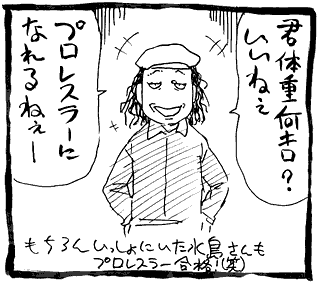 君体重何キロ？
いいねぇ
プロレスラーに
なれるねぇー
もちろんいっしょにいた水鳥さんも
プロレスラー合格!(笑)